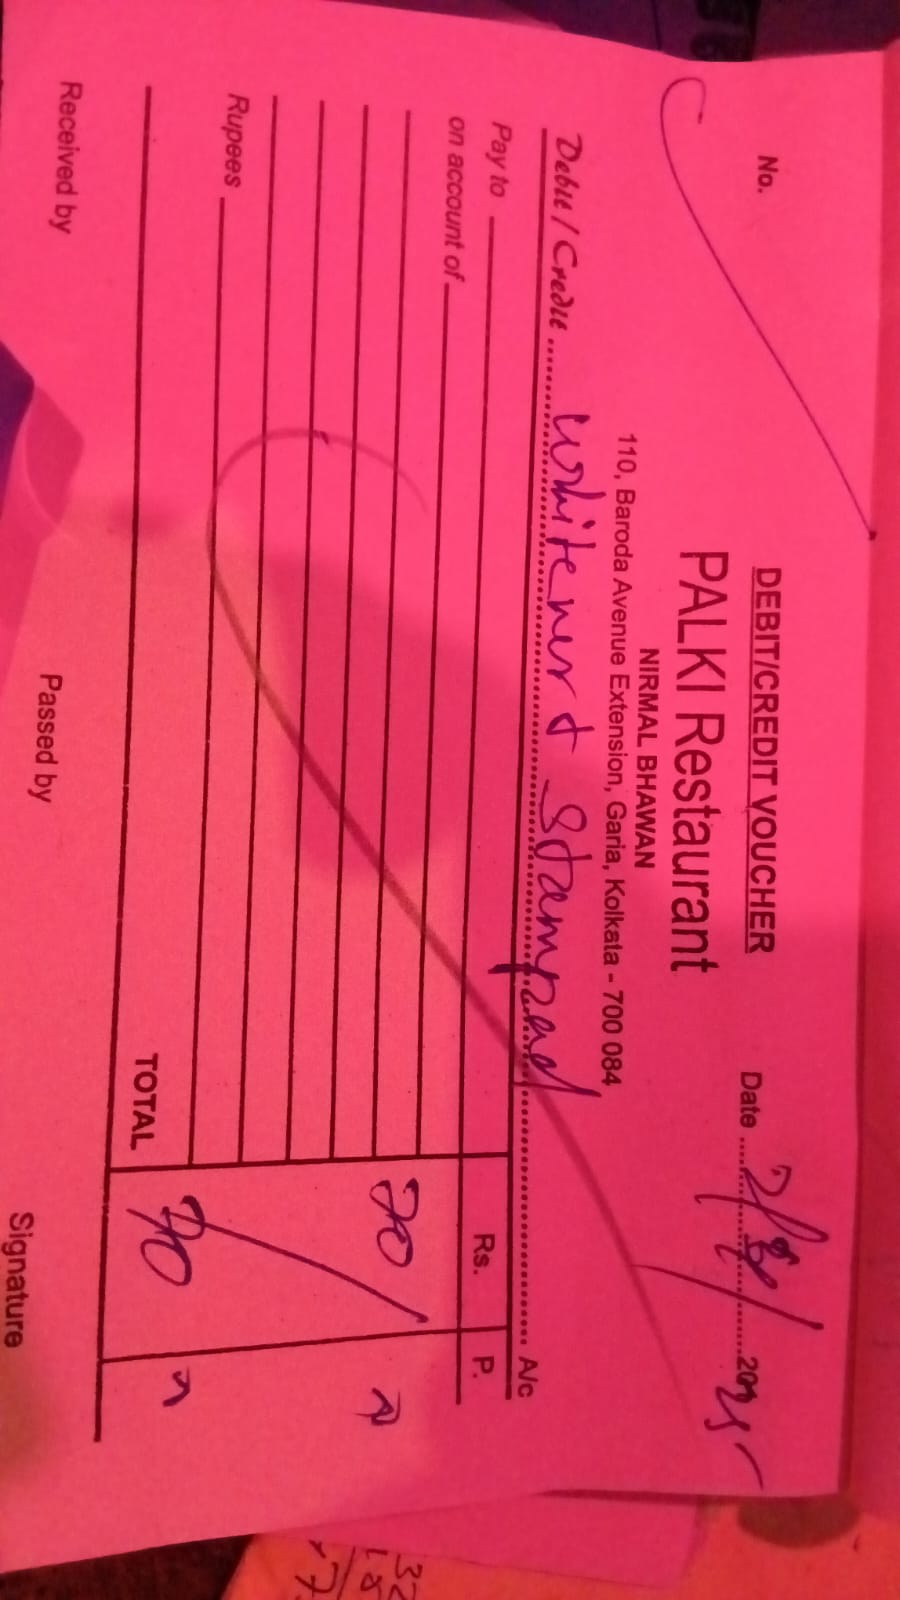 DEBIT/CREDIT VOUCHER
No.
PALKI Restaurant
Date
NIRMAL BHAWAN
110, Baroda Avenue Extension, Garia, Kolkata - 700 084
Debit / Credit whitener & Stampad A/c
Pay to Rs. P.
on account of
70
Rupees
TOTAL 70
Received by Passed by Signature